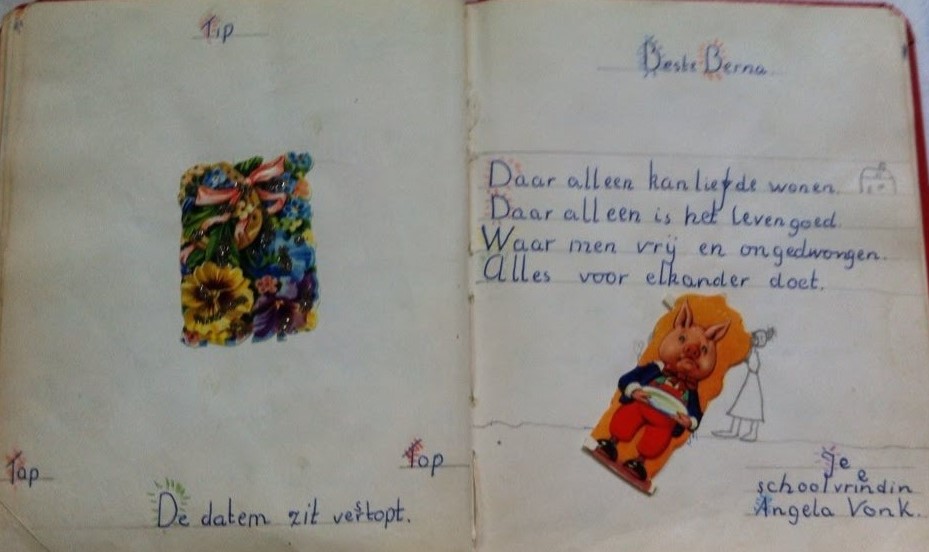 Tip
Tap
Top
De datem zit verstopt.
Beste Berna
Daar alleen kan liefde wonen.
Daar alleen is het leven goed.
Waar men vrij en ongedwongen.
Alles voor elkander doet.
Je
schoolvriendin
Angela Vonk.